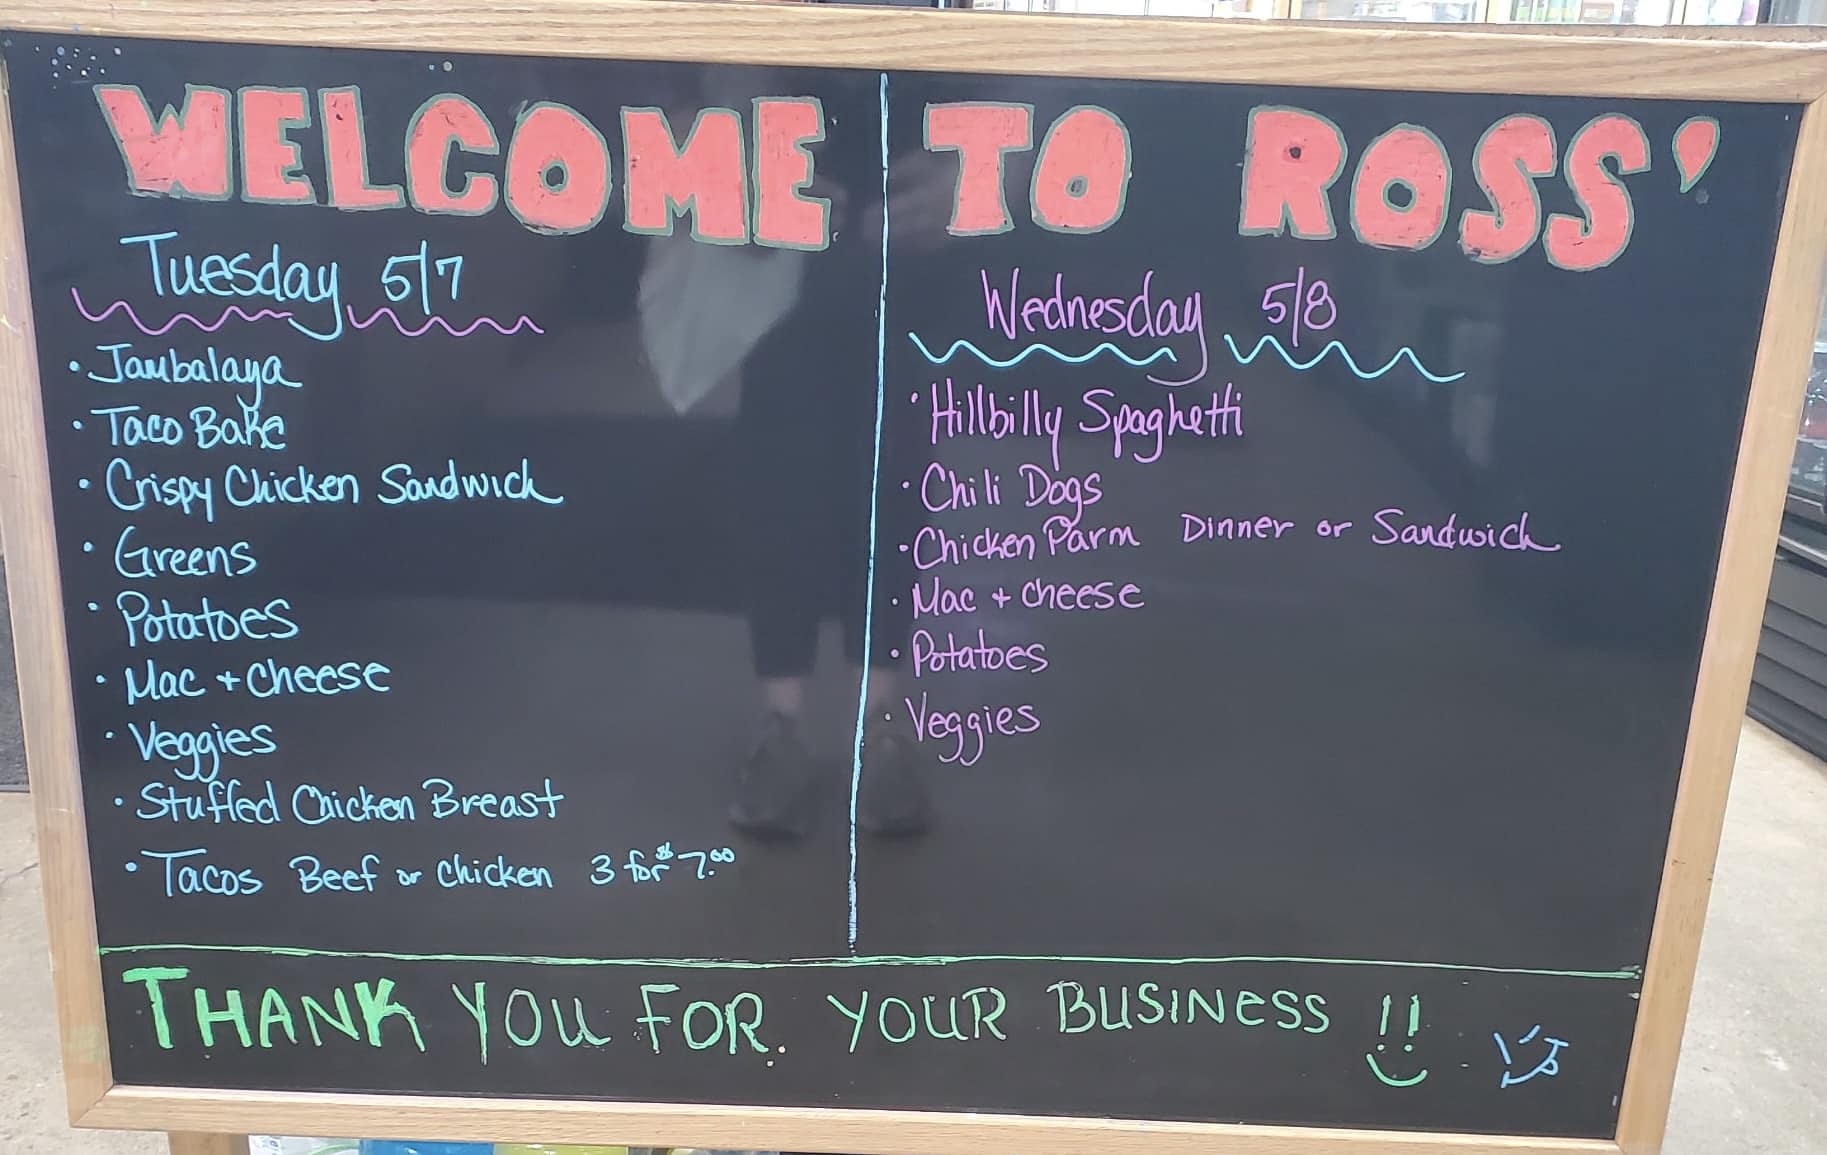 WELCOME TO ROSS'
Tuesday 5/7
• Jambalaya
• Taco Bake
• Crispy Chicken Sandwich
• Greens
• Potatoes
• Mac + Cheese
• Veggies
• Stuffed Chicken Breast
• Tacos Beef or Chicken 3 for $7.00
Wednesday 5/8
• Hillbilly Spaghetti
• Chili Dogs
• Chicken Parm Dinner or Sandwich
• Mac + Cheese
• Potatoes
• Veggies
THANK YOU FOR YOUR BUSINESS !!